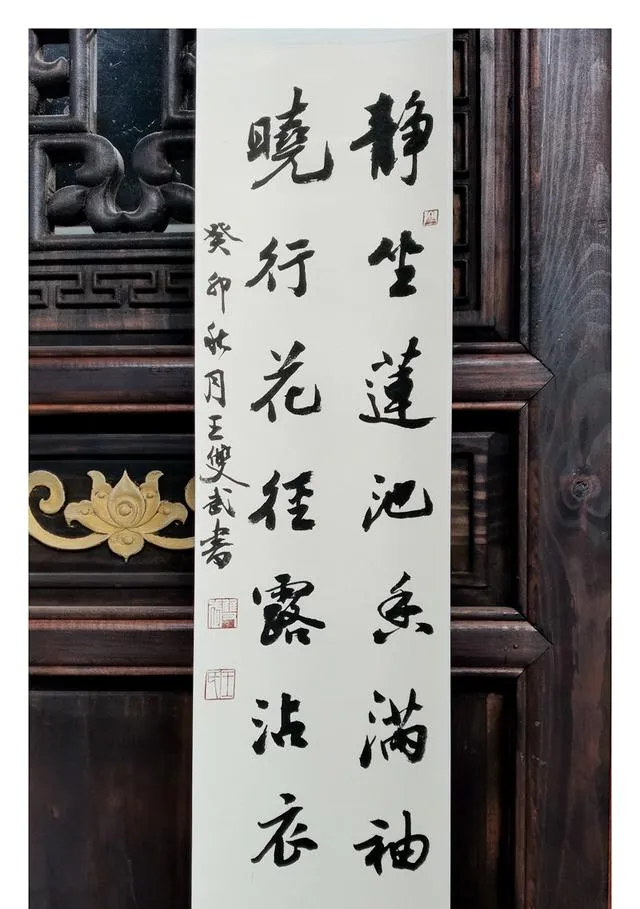 静坐蓮池香滿袖
曉行花徑露沾衣
癸卯秋月王雙武書